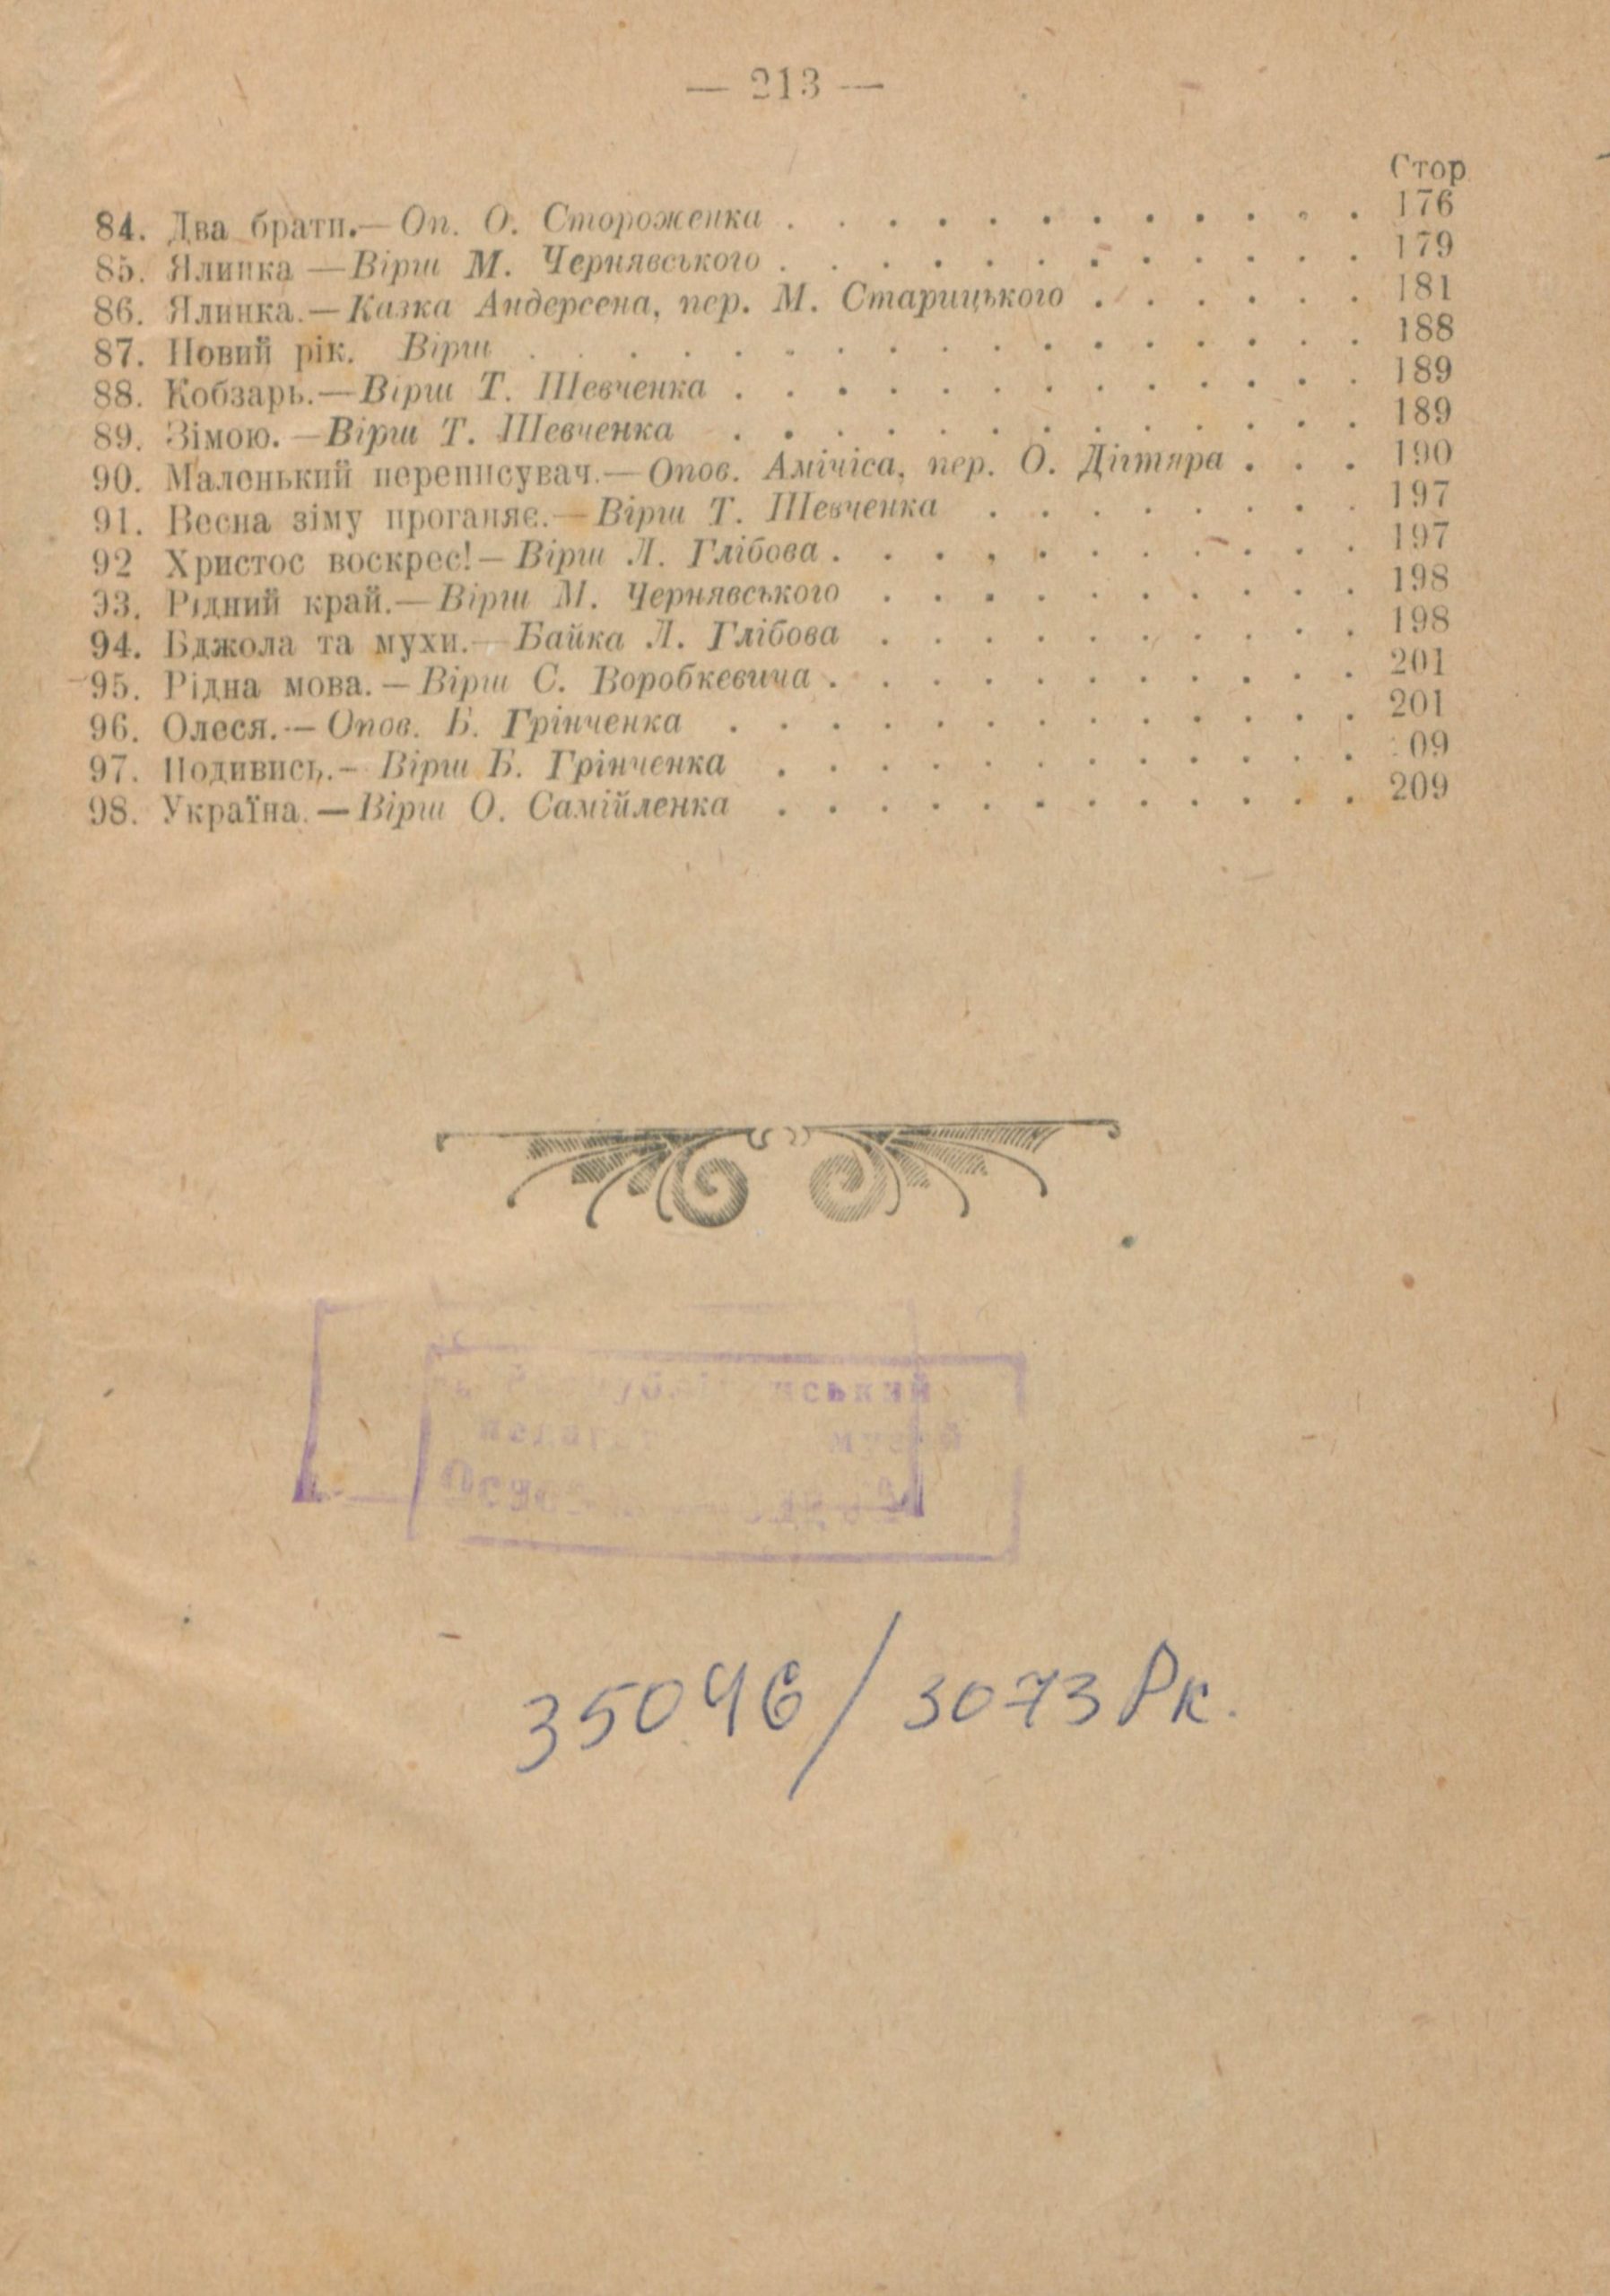 — 213 —
Стор
84. Два брати.—Оп. О. Стороженка . . . . . . . . . . . . 176
85. Ялинка —Вірш М. Чернявського . . . . . . . . . . . . 179
86. Ялинка.—Казка Андерсена, пер. М. Старицького . . . . . . 181
87. Новий рік. Вірш . . . . . . . . . . . . . . . . . 188
88. Кобзарь.—Вірш Т. Шевченка . . . . . . . . . . . . . 189
89. Зімою.—Вірш Т. Шевченка . . . . . . . . . . . . . 189
90. Маленький переписувач.—Опов. Амічіса, пер. О. Дігтяра . . . 190
91. Весна зіму проганяє.—Вірш Т. Шевченка . . . . . . . . 197
92 Христос воскрес!—Вірш Л. Глібова . . . . . . . . . . . 197
93. Рідний край.—Вірш М. Чернявського . . . . . . . . . . 198
94. Бджола та мухи.—Байка Л. Глібова . . . . . . . . . . 198
95. Рідна мова.—Вірш С. Воробкевича . . . . . . . . . . . 201
96. Олеся.—Опов. Б. Грінченка . . . . . . . . . . . . . 201
97. Подивись.—Вірш Б. Грінченка . . . . . . . . . . . . 09
98. Україна.—Вірш О. Самійленка . . . . . . . . . . . . 209
35046/3073 Рк.